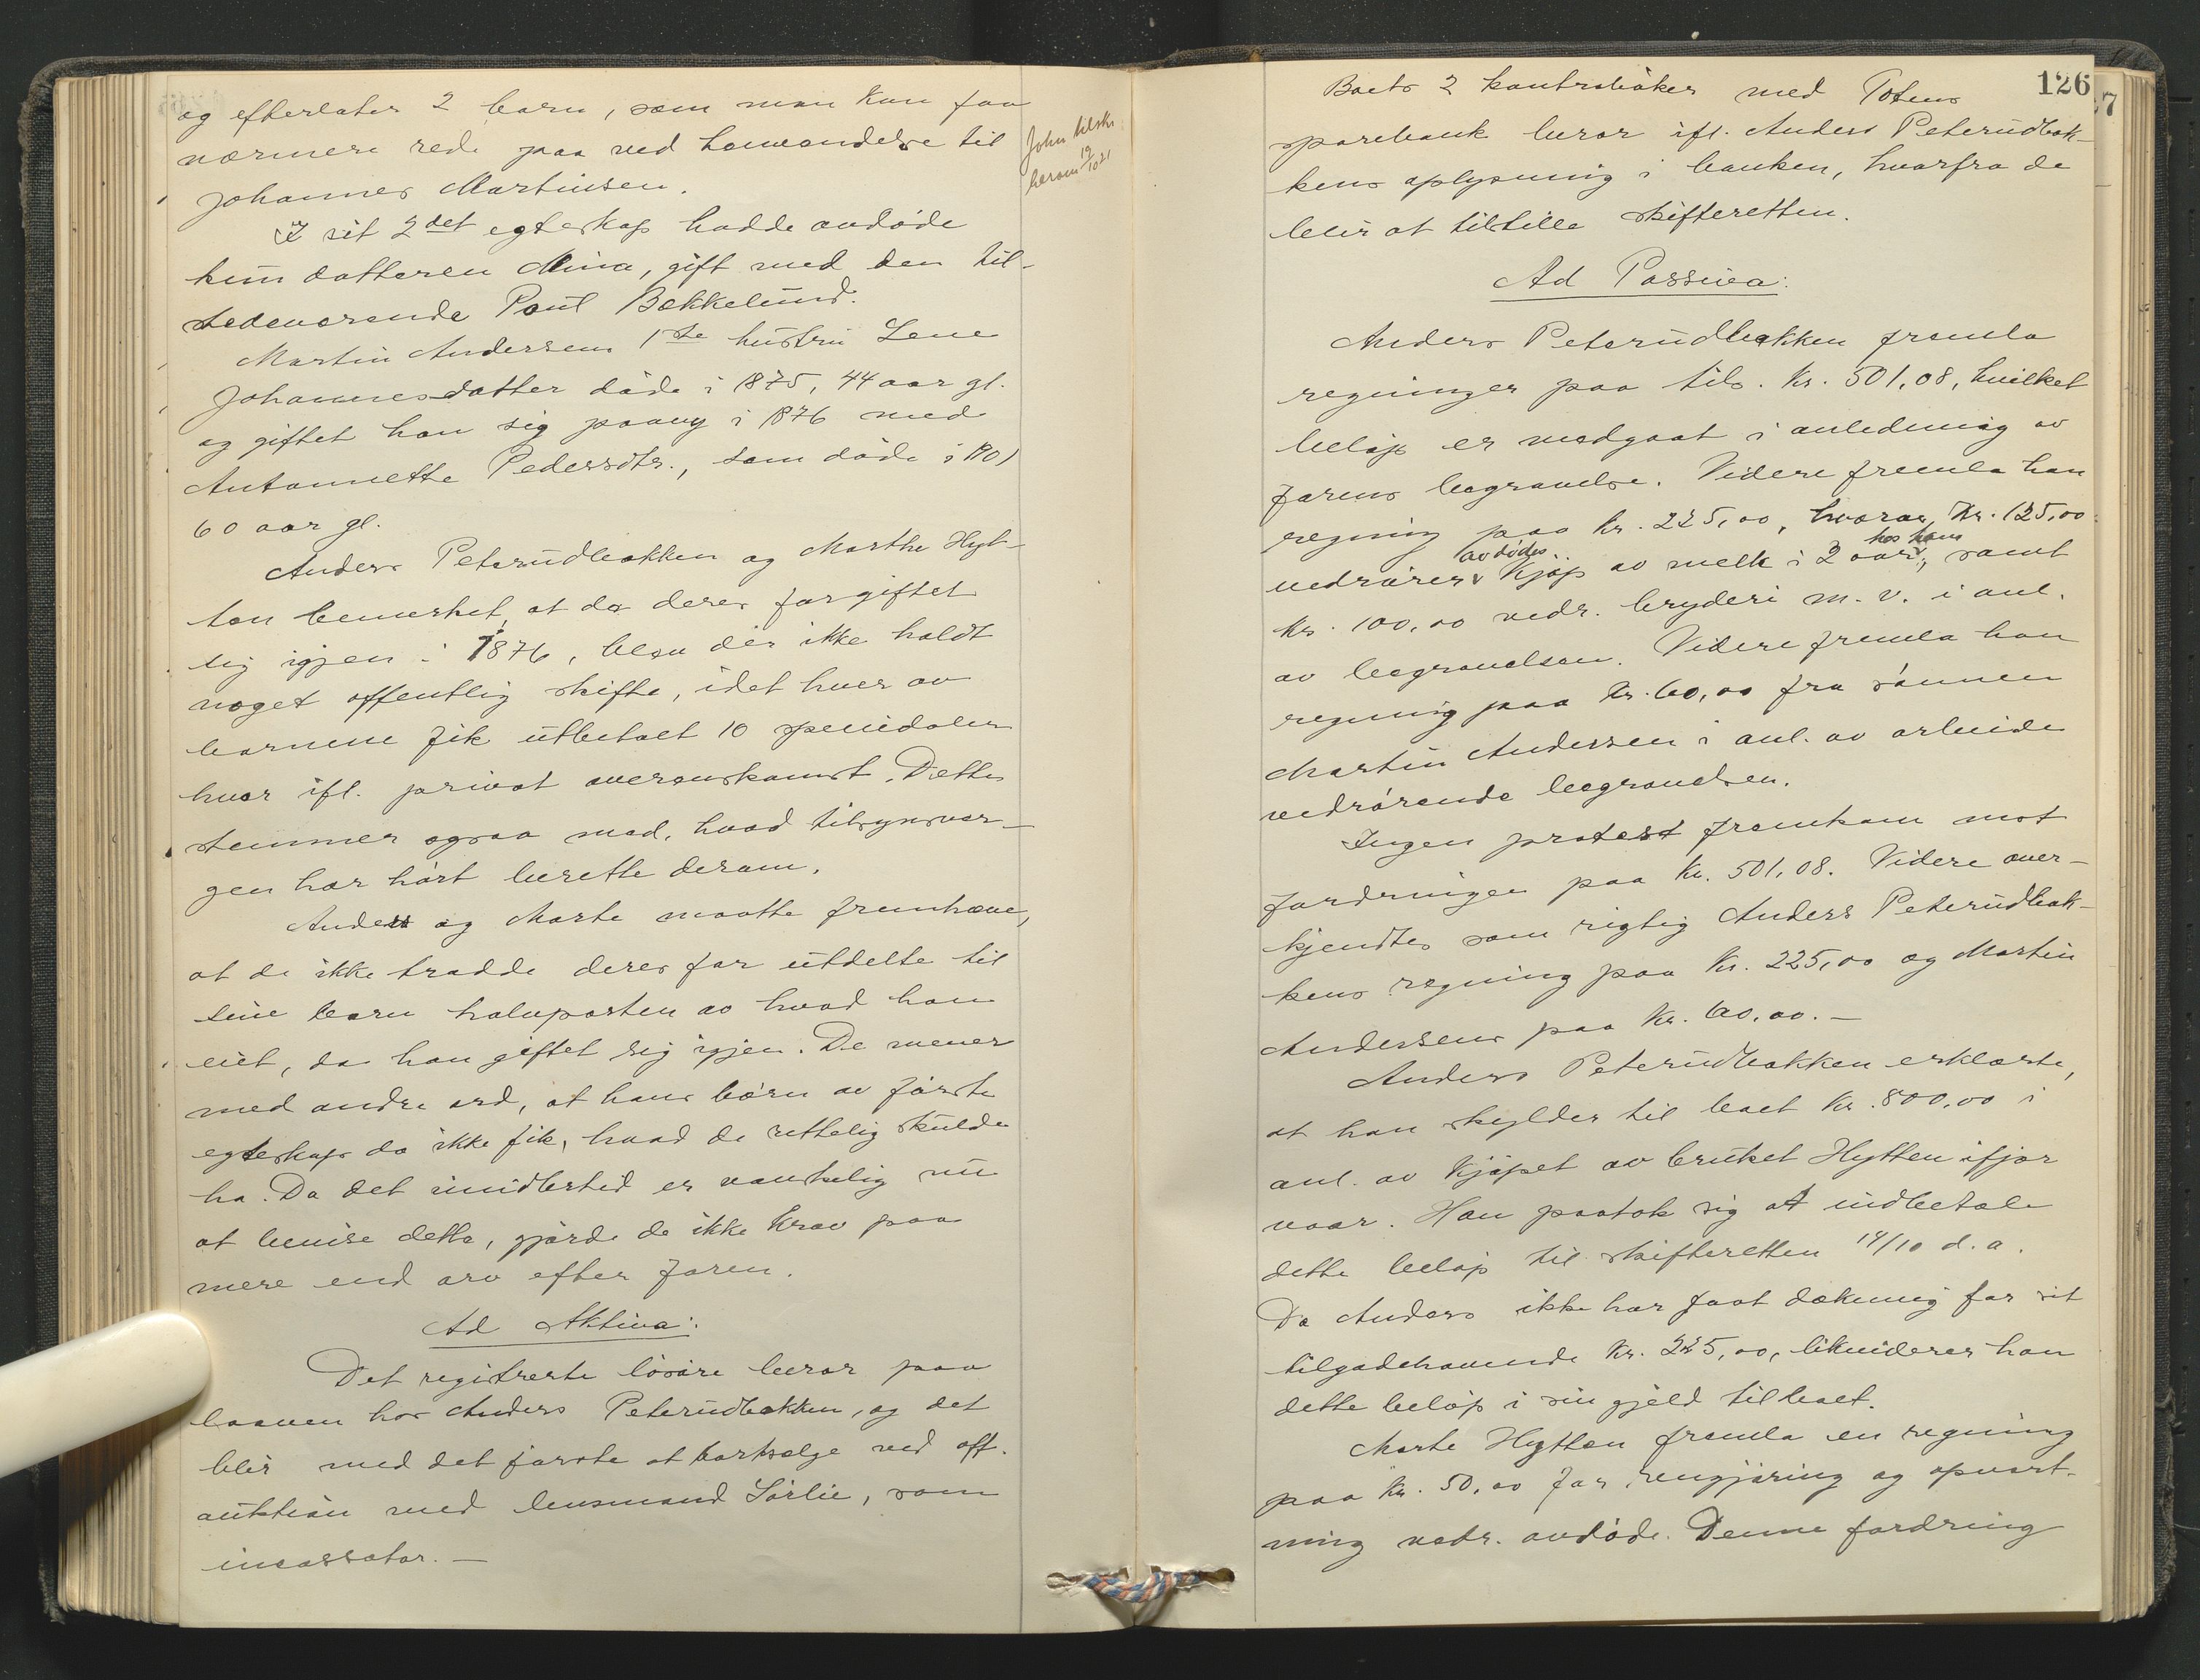 og efterlater 2 barn, som man kan faa
nærmere rede paa ved henvendelse til
Johannes Martinsen.
I sit 2det egteskap hadde avdöde
kun datteren Mina, gift med den til-
stedeværende Paul Bækkelund.
Martin Andersens 1ste hustru Lene
Johannesdatter döde i 1875, 44 aar gl.
og giftet han sig paany i 1876 med
Antonnette Pedersdtr., som döde i 1901
60 aar gl.
Anders Peterudbakken og Marthe Hyt-
ten bemerket, at da deres far giftet
sig igjen i 1876, blev der ikke holdt
noget offentlig skifte, idet hver av
barnene fik utbetalt 10 speciedaler
hver ifl. privat overenskomst. Dette
stemmer ogsaa med, hvad tilsynsvær-
gen har hört berette derom.
Anders og Marte maatte fremhæve,
at de ikke trodde deres far utdelte til
sine barn halvparten av hvad han
eiet, da han giftet sig igjen. De mener
med andre ord, at hans börn av förste
egteskap da ikke fik, hvad de rettelig skulde
ha. Da det imidlertid er vanskelig nu
at bevise dette, gjorde de ikke krav paa
mere end arv efter faren.
Ad Aktiva:
Det registrerte lösöre beror paa
laaven hos Anders Peterudbakken, og det
blir med det förste at bortsælge ved off.
auktion med lensmand Sörlie, som
incassator. —
John tilskr.
herom 19/10 21
126
7
Boets 2 kontraböker med Totens
sparebank beror ifl. Anders Peterudbak-
kens oplysning i banken, hvorfra de
blir at tilstille skifteretten.
Ad Passiva:
Anders Peterudbakken fremla
regninger paa tils. kr. 501,08, hvilket
belöp er medgaat i anledning av
farens begravelse. Videre fremla han
regning paa kr. 225,00, hvorav kr. 125,00
avdödes hos ham
vedrörer kjöp av melk i 2 aar, samt
kr. 100,00 vedr. bryderi m. v. i anl.
av begravelsen. Videre fremla han
regning paa kr. 60,00 fra sönnen
Martin Andersen i anl. av arbeide
vedrörende begravelsen.
Ingen protest fremkom mot
fordringen paa kr. 501,08. Videre aner-
kjendtes som rigtig Anders Peterudbak-
kens regning paa kr. 225,00 og Martin
Andersens paa kr. 60,00. —
Anders Peterudbakken erklærte,
at han skylder til boet kr. 800,00 i
anl. av kjöpet av bruket Hytten ifjor
vaar. Han paatok sig at indbetale
dette belöp til skifteretten 14/10 d. a.
Da Anders ikke har faat dækning for sit
tilgodehavende kr. 225,00, likviderer han
dette belöp i sin gjeld til boet.
Marte Hytten fremla en regning
paa kr. 50,00 for rengjöring og opvart-
ning vedr. avdöde. Denne fordring